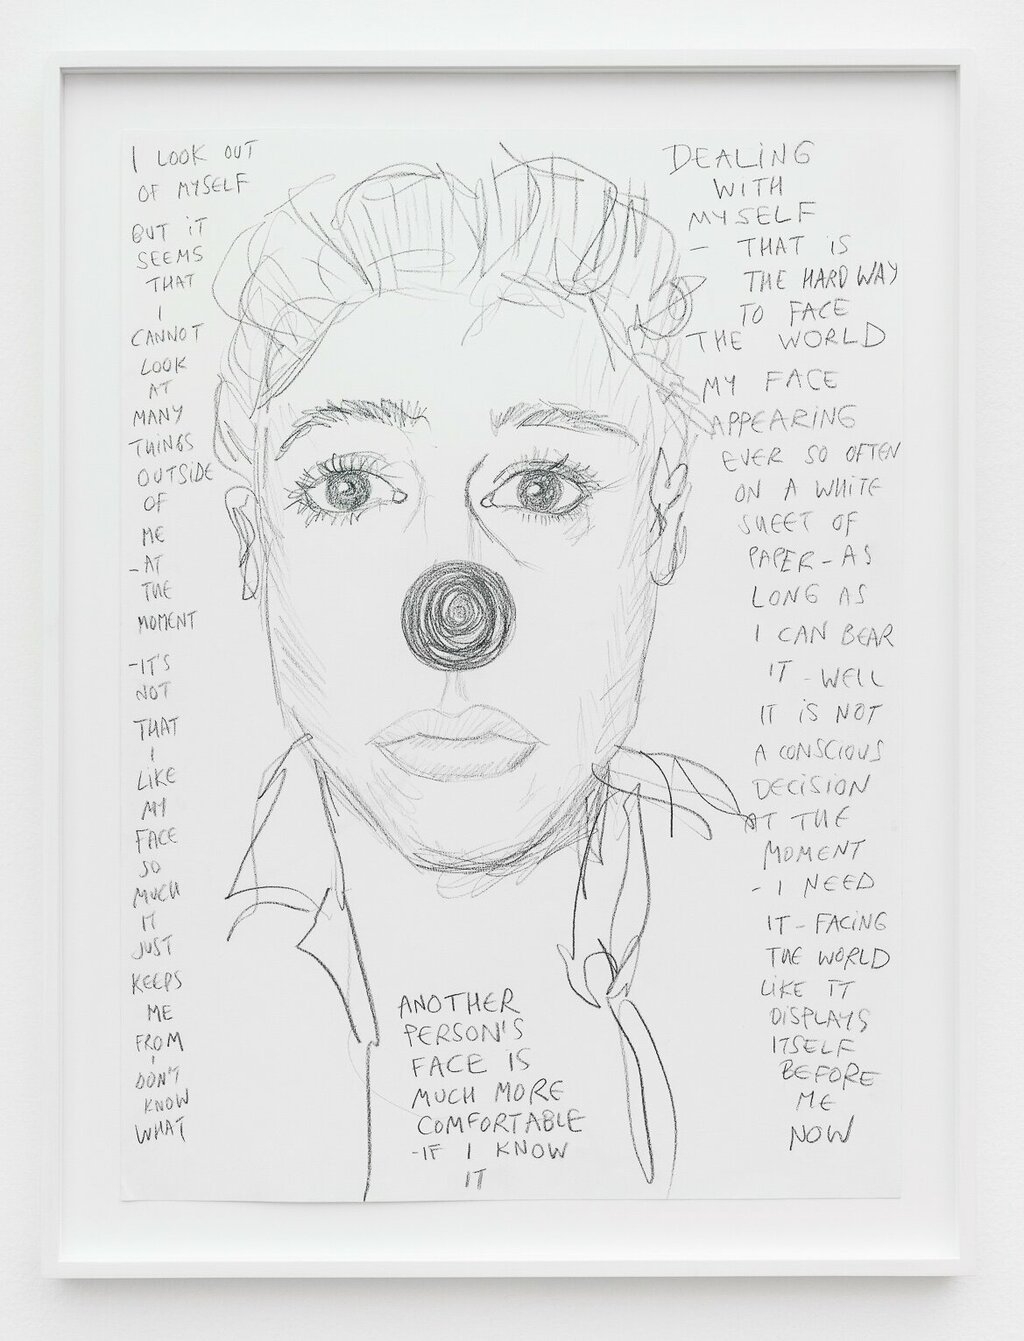 I LOOK OUT
OF MYSELF
BUT IT
SEEMS
THAT
I
CANNOT
LOOK
AT
MANY
THINGS
OUTSIDE
OF
ME
-AT
THE
MOMENT
-IT'S
NOT
THAT
I
LIKE
MY
FACE
SO
MUCH
IT
JUST
KEEPS
ME
FROM
I
DON'T
KNOW
WHAT
ANOTHER
PERSON'S
FACE IS
MUCH MORE
COMFORTABLE
-IF I KNOW
IT
DEALING
WITH
MYSELF
- THAT IS
THE HARD WAY
TO FACE
THE WORLD
MY FACE
APPEARING
EVER SO OFTEN
ON A WHITE
SHEET OF
PAPER - AS
LONG AS
I CAN BEAR
IT - WELL
IT IS NOT
A CONSCIOUS
DECISION
AT THE
MOMENT
- I NEED
IT - FACING
THE WORLD
LIKE IT
DISPLAYS
ITSELF
BEFORE
ME
NOW